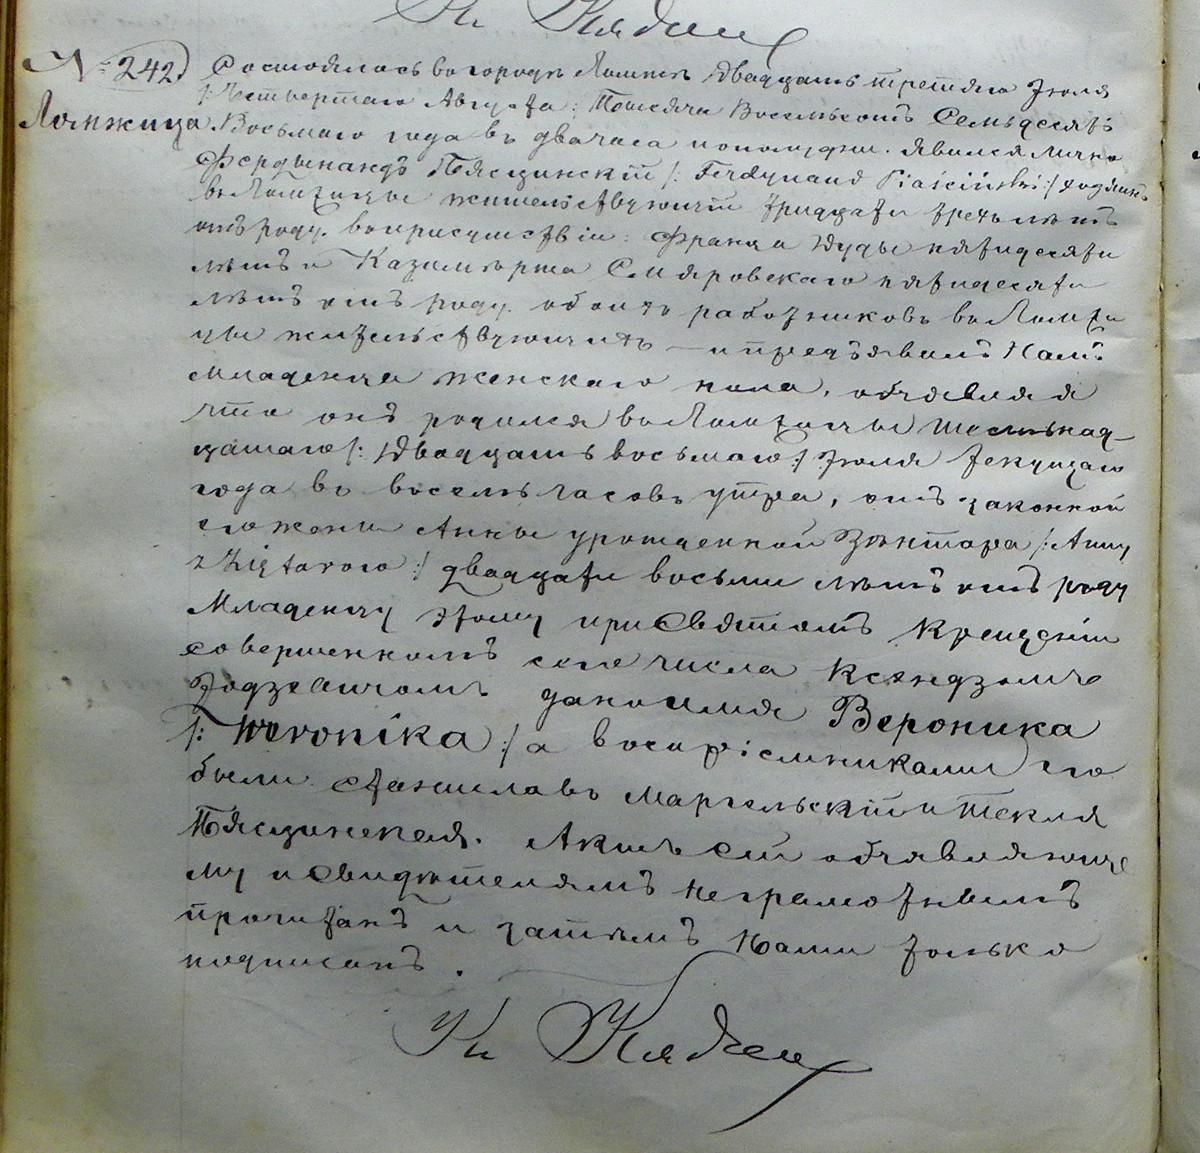 Кс
№ 242
Состоялось вогородѣ Ломжѣ двадцать третьяго Іюля
Ломжица
/: Четвертаго Августа: Тысяча Восемьсотъ Семьдесятъ
Восьмаго года въ два часа пополудни. явился лично
Фердынандъ Пясцинскій /: Ferdynand Piaściński :/
въ Ломжицы жительствующій тридцати трехъ лѣтъ
отъ роду. въ присутствіи: Франка Дуды пятидесяти
лѣтъ и Казимѣржа Смяровскаго пятидесяти
лѣтъ отъ роду. обоихъ работниковъ въ Ломжи
цы жительствующихъ — и предъявилъ Намъ
младенца женскаго пола, объявляя
что онъ родился въ Ломжицы шестьнад-
цатаго /: Двадцать восьмаго :/ Іюля текущаго
года въ восемь часовъ утра, отъ законной
его жены Анны урожденной Зентара /: Anny
z Ziętarow :/ двадцати восьми лѣтъ отъ роду
Младенцу этому при Святомъ Крещеніи
совершенномъ сего числа Ксендзомъ
дано имя Вероника
/: Weronika :/ а воспріемниками его
были Станиславъ Маргельскій и Текля
Пясцинская. Актъ сей объявляюще
му и Свидѣтелямъ неграмотнымъ
прочитанъ и затѣмъ Нами только
подписанъ.
Кс